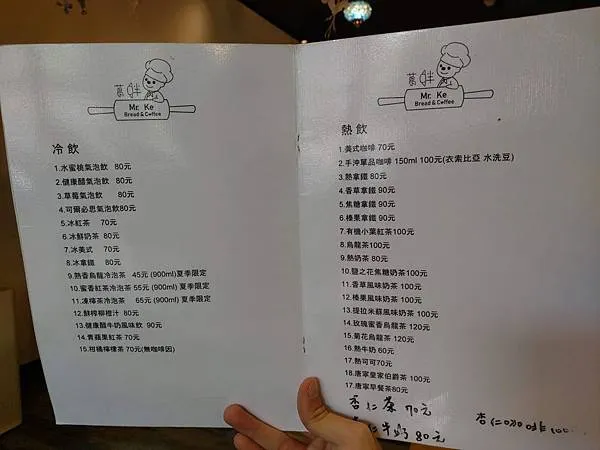 萬咔
Mr. Ke
Bread & Coffee
冷飲
1.水蜜桃氣泡飲 80元
2.健康醋氣泡飲 80元
3.草莓氣泡飲 80元
4.可爾必思氣泡飲80元
5.冰紅茶 70元
6.冰鮮奶茶 80元
7.冰美式 70元
8.冰拿鐵 80元
9.熟香烏龍冷泡茶 45元 (900ml)夏季限定
10.蜜香紅茶冷泡茶 55元 (900ml) 夏季限定
11.凍檸茶冷泡茶 65元 (900ml) 夏季限定
12.鮮榨柳橙汁 80元
13.健康醋牛奶風味飲 90元
14.青蘋果紅茶 70元
15.柑橘檸檬茶 70元(無咖啡因)
Mr. Ke
Bread & Coffee
熱飲
1.美式咖啡 70元
2.手沖單品咖啡 150ml 100元(衣索比亞 水洗豆)
3.熱拿鐵 80元
4.香草拿鐵 90元
5.焦糖拿鐵 90元
6.榛果拿鐵 90元
7.有機小葉紅茶100元
8.烏龍茶100元
9.熱奶茶 80元
10.鹽之花焦糖奶茶100元
11.香草風味奶茶 100元
12.榛果風味奶茶 100元
13.提拉米蘇風味奶茶 100元
14.玫瑰蜜香烏龍茶 120元
15.菊花烏龍茶 120元
16.熱牛奶 60元
17.熱可可70元
18.唐寧皇家伯爵茶 100元
17.唐寧早餐茶80元
杏仁茶 70元
仁牛奶 80元
杏仁咖啡 100